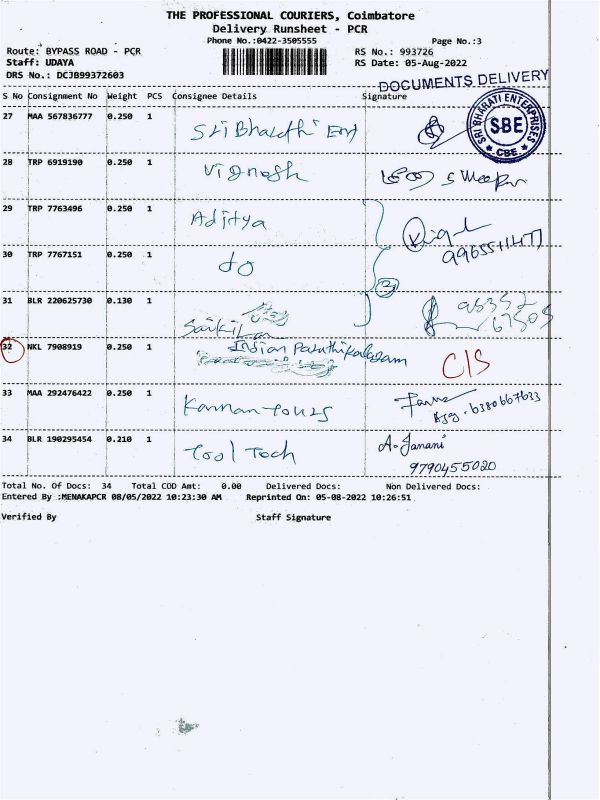 THE PROFESSIONAL COURIERS, Coimbatore
Delivery Runsheet - PCR
Phone No.:0422-3505555 Page No.:3
Route: BYPASS ROAD - PCR RS No.: 993726
Staff: UDAYA RS Date: 05-Aug-2022
DRS No.: DCJB99372603
DOCUMENTS DELIVERY
S No Consignment No Weight PCS Consignee Details Signature
SRI BHARATI ENTERPRISES
SBE
CBE
27 MAA 567836777 0.250 1 Sri Bharathi Ent
28 TRP 6919190 0.250 1 Vignesh
29 TRP 7763496 0.250 1 Aditya
30 TRP 7767151 0.250 1 do
2
31 BLR 220625730 0.130 1
32 NKL 7908919 0.250 1 Indian C/S
33 MAA 292476422 0.250 1 Kannan Tours 6380667633
34 BLR 190295454 0.210 1 Tool Tech A. Janani
9790455020
Total No. Of Docs: 34 Total COD Amt: 0.00 Delivered Docs: Non Delivered Docs:
Entered By :MENAKAPCR 08/05/2022 10:23:30 AM Reprinted On: 05-08-2022 10:26:51
Verified By Staff Signature